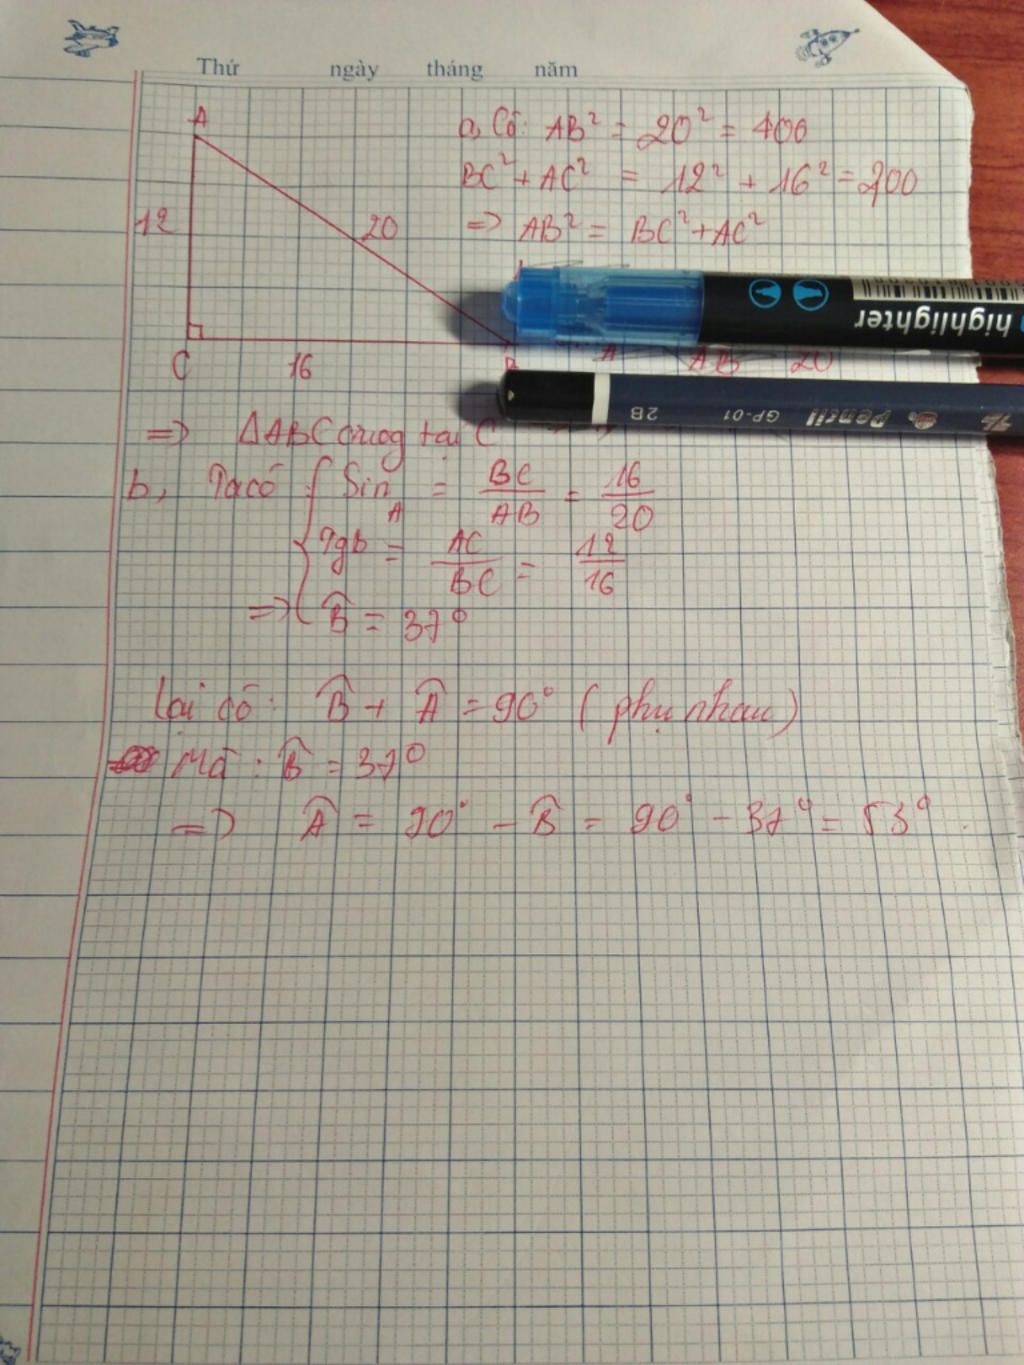 Thứ ngày tháng năm
A
a, Có: AB² = 20² = 400
BC² + AC² = 12² + 16² = 200
12
20
=> AB² = BC² + AC²
highlighter
C
16
AB
20
2B
GP-01
Pencil
=> ΔABC vuông tại C
b, Ta có { Sin A = BC/AB = 16/20
Tgb = AC/BC = 12/16
=> B̂ = 37°
Lại có: B̂ + Â = 90° (phụ nhau)
Mà: B̂ = 37°
=> Â = 90° - B̂ = 90° - 37° = 53°.